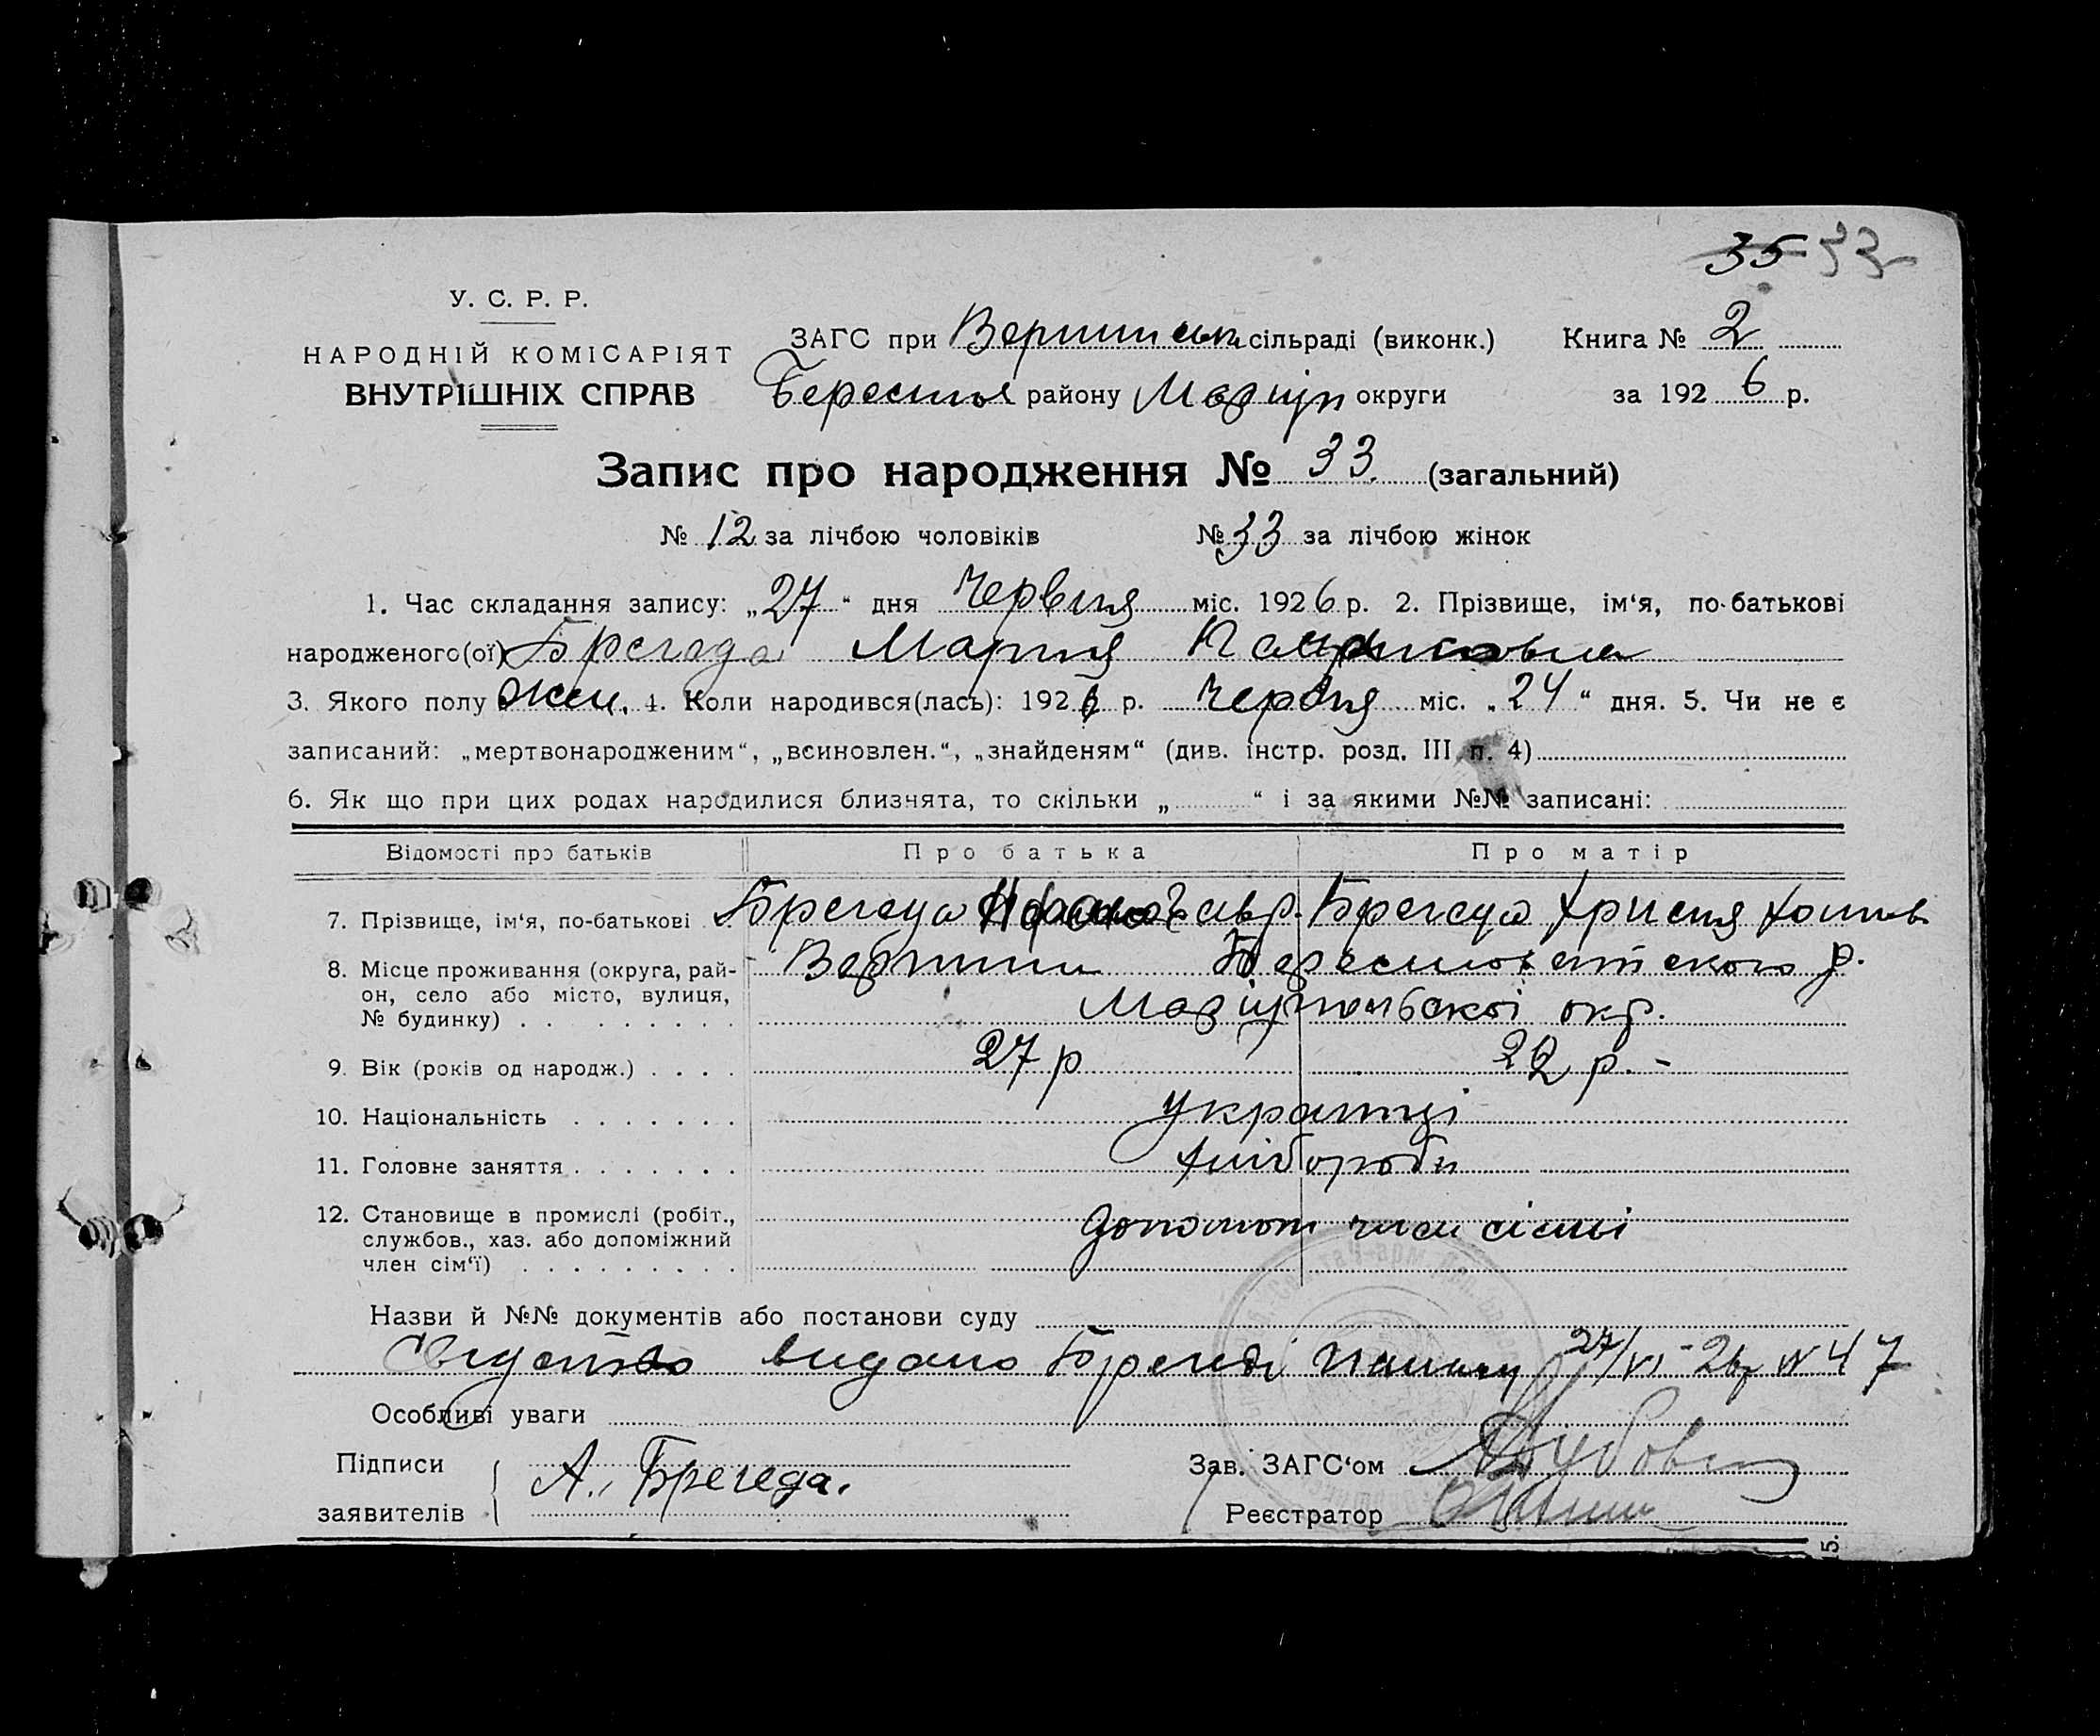 35 33
У. С. Р. Р.
НАРОДНІЙ КОМІСАРІЯТ
ВНУТРІШНІХ СПРАВ
ЗАГС при сільраді (виконк.) Книга № 2
району Маріуп округи за 1926 р.
Запис про народження № 33 (загальний)
№ 12 за лічбою чоловіків № 33 за лічбою жінок
1. Час складання запису: „27“ дня Червня міс. 1926 р. 2. Прізвище, ім‘я, по-батькові
народженого(ої) Брегада Мария
3. Якого полу жін. 4. Коли народився(лась): 1926 р. Червня міс. „24“ дня. 5. Чи не є
записаний: „мертвонародженим“, „всиновлен.“, „знайденям“ (див. інстр. розд. III п. 4)
6. Як що при цих родах народилися близнята, то скільки „ “ і за якими №№ записані:
Відомості про батьків Про батька Про матір
7. Прізвище, ім‘я, по-батькові Брегеда Брегеда Христя
8. Місце проживання (округа, рай-
он, село або місто, вулиця,
№ будинку) Маріупольської окр.
9. Вік (років од народж.) 27 р 22 р. -
10. Національність українці
11. Головне заняття хлібороби
12. Становище в промислі (робіт.,
службов., хаз. або допоміжний
член сім‘ї) допомож член сімї
Назви й №№ документів або постанови суду
видано Брегеді 27/VI-26р № 47
Особливі уваги
Підписи
заявителів А. Брегеда.
Зав. ЗАГС‘ом
Реєстратор